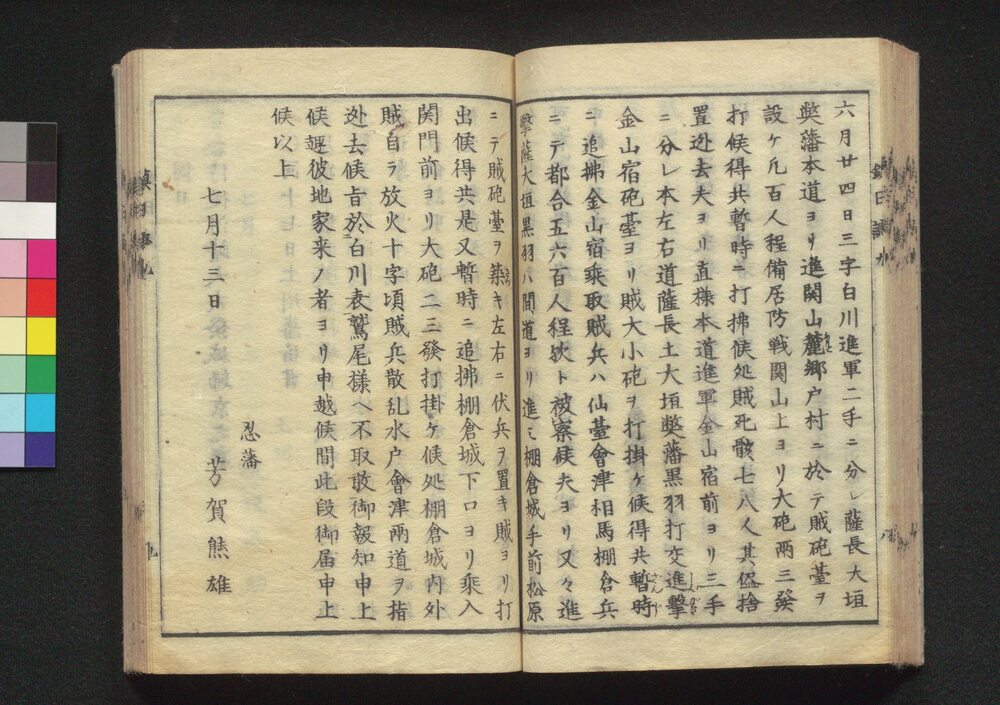 六月廿四日三字白川進軍二手ニ分レ薩長大垣
弊藩本道ヨリ進関山麓郷戸村ニ於テ賊砲臺ヲ
設ケ凡百人程備居防戦関山上ヨリ大砲両三發
打候得共暫時ニ打拂候処賊死骸七八人其侭捨
置迯去夫ヨリ直様本道進軍金山宿前ヨリ三手
ニ分レ本左右道薩長土大垣弊藩黒羽打交進撃
金山宿砲臺ヨリ賊大小砲ヲ打掛ケ候得共暫時
ニ追拂金山宿乗取賊兵ハ仙臺會津相馬棚倉兵
ニテ都合五六百人程欤ト被察候夫ヨリ又々進
撃薩大垣黒羽ハ間道ヨリ進ミ棚倉城手前松原
ニテ賊砲臺ヲ築キ左右ニ伏兵ヲ置キ賊ヨリ打
出候得共是又暫時ニ追拂棚倉城下口ヨリ乗入
関門前ヨリ大砲二三發打掛ケ候処棚倉城内外
賊自ラ放火十字頃賊兵散乱水户會津両道ヲ指
迯去候旨於白川表鷲尾様ヘ不取敢御報知申上
候趣彼地家来ノ者ヨリ申越候間此段御届申上
候以上
七月十三日
忍藩
芳賀熊雄